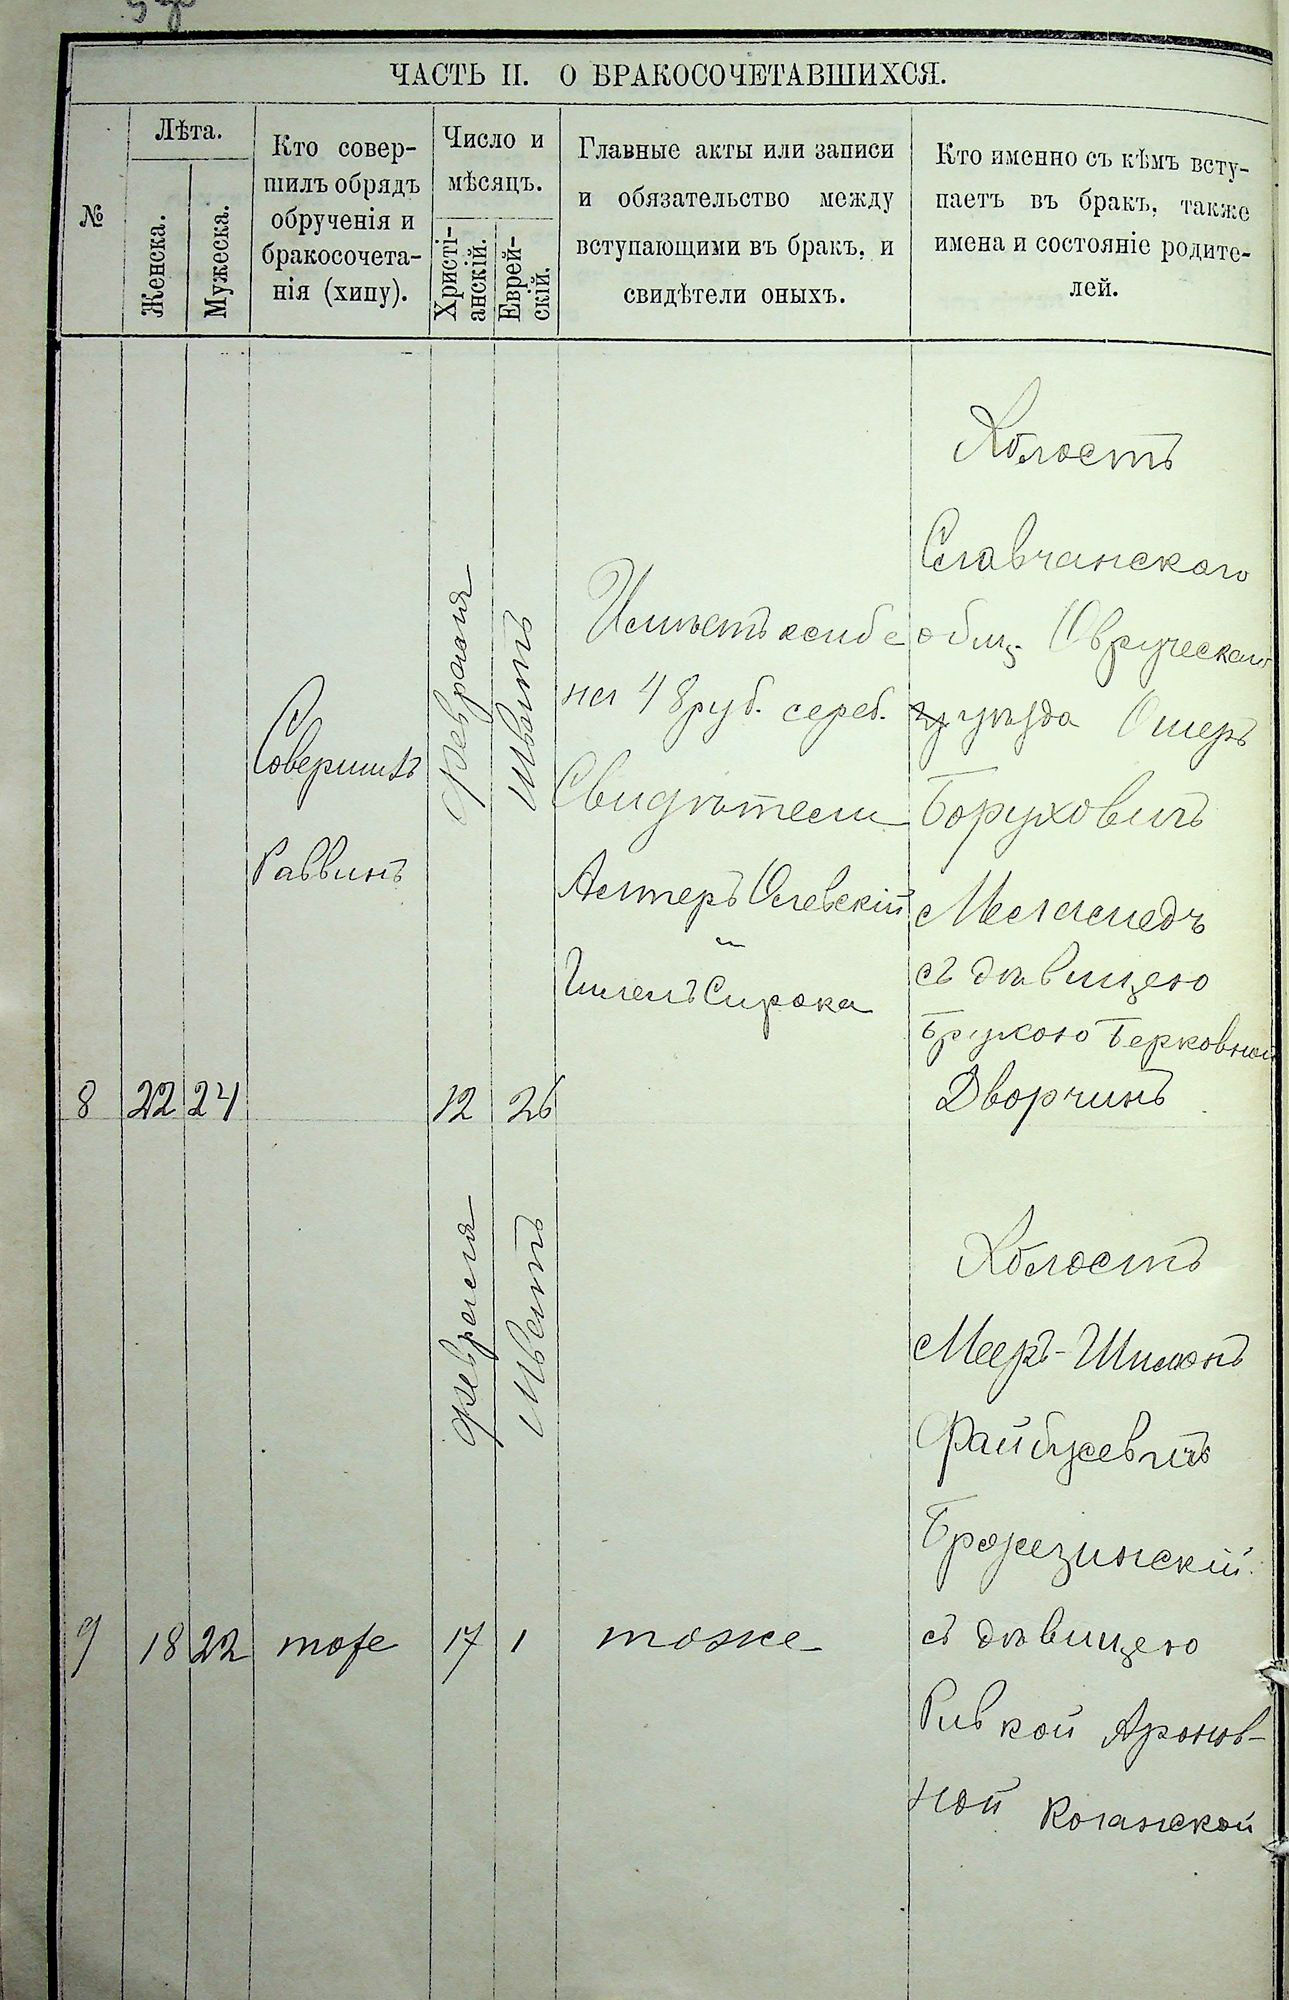 ЧАСТЬ II. О БРАКОСОЧЕТАВШИХСЯ.
№
Лѣта.
Женска.
Мужеска.
Кто совер-
шилъ обрядъ
обрученія и
бракосочета-
нія (хипу).
Число и
мѣсяцъ.
Христі-
анскій.
Еврей-
скій.
Главные акты или записи
и обязательство между
вступающими въ бракъ, и
свидѣтели оныхъ.
Кто именно съ кѣмъ всту-
паетъ въ бракъ, также
имена и состояніе родите-
лей.
8
22
24
Совершилъ
Раввинъ
февраля
12
Шватъ
26
на 48 руб. сереб.
Свидѣтели
Олевскій
и
Сирока
Холостъ
Славчанскаго
общ. Овручскаго
уѣзда Ошеръ
Боруховичъ
Меламедъ
съ дѣвицею
Брухою Берковной
Дворчинъ
9
18
22
тоже
февраля
17
Шватъ
1
тоже
Холостъ
Мееръ-Шимонъ
Файбусевичъ
Бражезинскій
съ дѣвицею
Ривкой Аронов-
ной Коганской